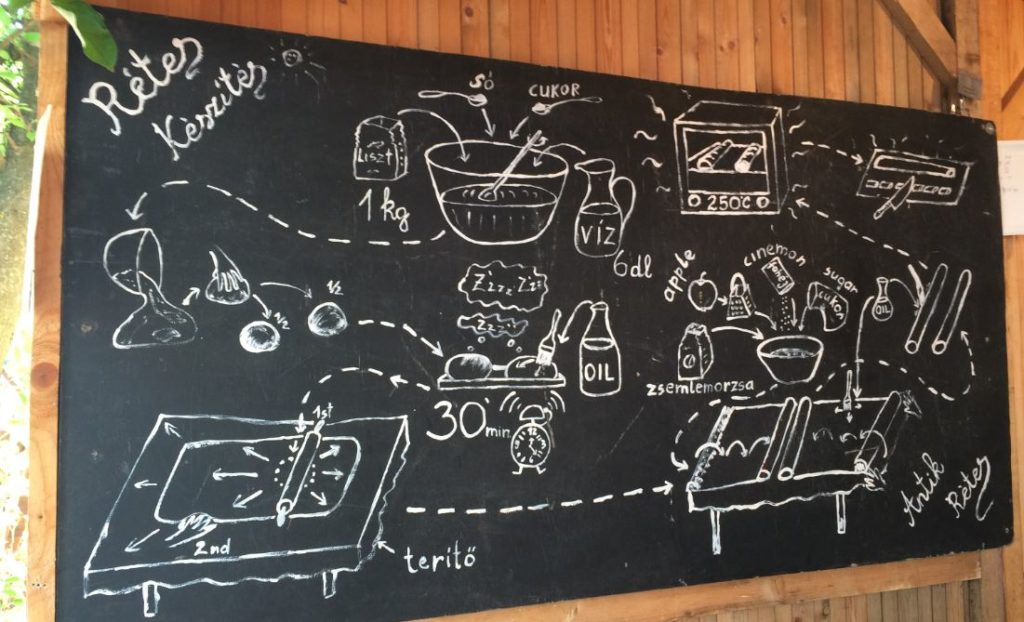 Rétes
Készítés
SÓ
CUKOR
LISZT
1kg
VÍZ
6dl
250°C
1/2
1/2
ZzzzZzz
Zzzz
OIL
30 min.
12
apple
cinemon
fahéj
sugar
cukor
OIL
zsemlemorzsa
1st
2nd
terítő
Antik
Rétes